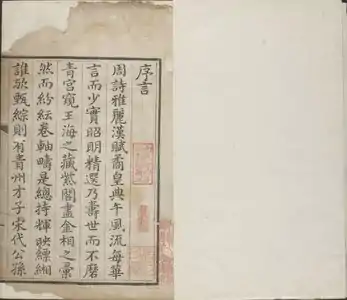 序言
周詩雅麗漢賦矞皇與午風流每華
言而少實昭明精選乃壽世而不磨
青宮窺玉海之藏紫閣盡金相之彙
然而紛紜卷軸疇是總持輝映縹緗
誰欤甄綜則有青州才子宋代公孫